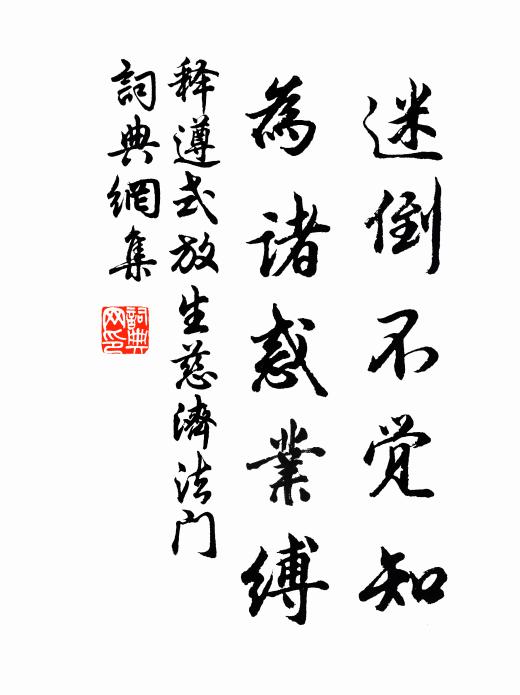 迷倒不觉知
為諸惑業縛
释遵式放生慈濟法门
詞典網集
詞典网印